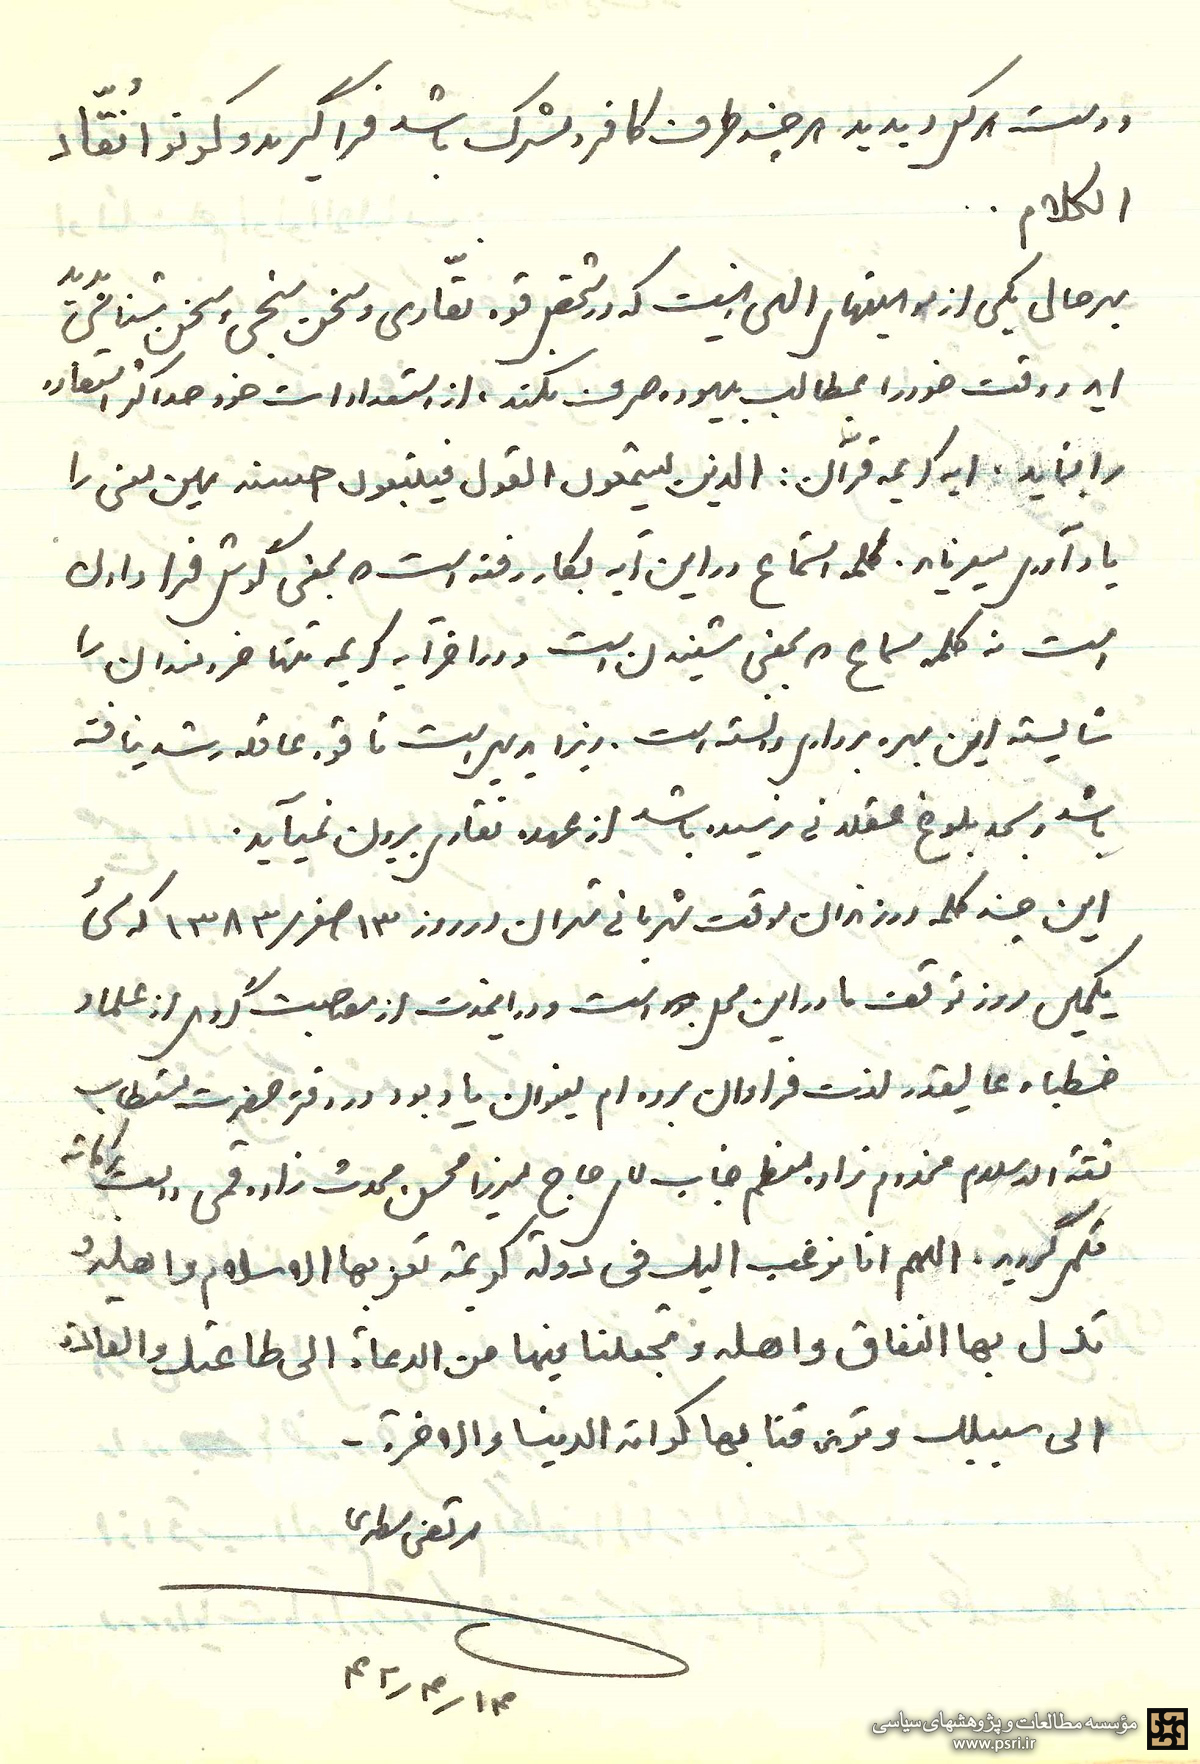 و در دست هر کس دیدید هر چند طرف کافر و مشرک باشد فرا گیرید و کونوا نُقّاد
الکلام ..
بهر حال یکی از موهبتهای الهی اینست که در شخص قوه نقّادی و سخن سنجی و سخن شناسی پدید
آید و وقت خود را بمطالب بیهوده صرف نکند، از استعدادات خود حداکثر استفاده
را بنماید، آیه کریمه قرآن: الذین یستمعون القول فیتبعون احسنه همین معنی را
یادآوری میفرماید. کلمه استماع در این آیه بکار رفته است که بمعنی گوش فرا دادن
است نه کلمه سماع که بمعنی شنیدن است و در آخر آیه کریمه تنها خردمندان را
شایسته این بهره برداری دانسته است. زیرا بدیهی است تا قوه عاقله رشد نیافته
باشد و بحد بلوغ عقلانی نرسیده باشد از عهده نقادی بیرون نمیآید.
این چند کلمه در زندان موقت شهربانی تهران در روز ۱۳ صفر ۱۳۸۳ که سی و
یکمین روز توقف ما در این محل بوده است و در اینمدت از مصاحبت گروهی از علماء و
خطباء عالیقدر لذت فراوان برده ام بعنوان یادبود در دفتر حضرت مستطاب
ثقة الاسلام مخدوم زاده معظم جناب آقای حاج میرزا محسن محدث زاده قمی دامت برکاته
قلمی گردید. اللهم انا نرغب الیک فی دولة کریمة تعز بها الاسلام و اهله و
تذل بها النفاق و اهله و تجعلنا فیها من الدعاة الی طاعتک و القادة
الی سبیلک و ترزقنا بها کرامة الدنیا و الاخرة -
مرتضی مطهری
۴۲/۴/۱۴
مؤسسه مطالعات و پژوهشهای سیاسی
www.psri.ir